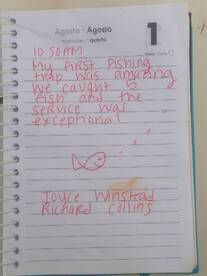 Agosto - Agosto
miércoles - quarta
1
10:50AM
My FIRST FISHING
TRIP WAS AMAZING
WE CAUGHT 5
FISH AND THE
SERVICE WAS
EXCEPTIONAL
Joyce Winstead
Richard Collins